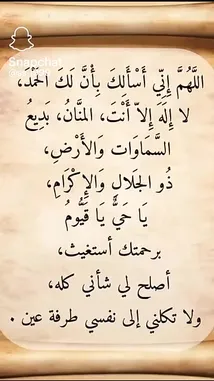 Snapchat
اللَّهُمَّ إِنِّي أَسْأَلُكَ بِأَنَّ لَكَ الْحَمْدَ،
لا إِلَهَ إِلاّ أَنْتَ، المنَّانُ، بَدِيعُ
السَّمَاوَات وَالأَرْضِ،
ذُو الجَلالِ وَالإِكْرَامِ،
يَا حَيُّ يَا قَيُّومُ
برحمتك أستغيث،
أصلح لي شأني كله،
ولا تكلني إلى نفسي طرفة عين .